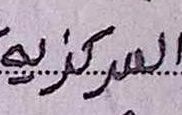 المركزية